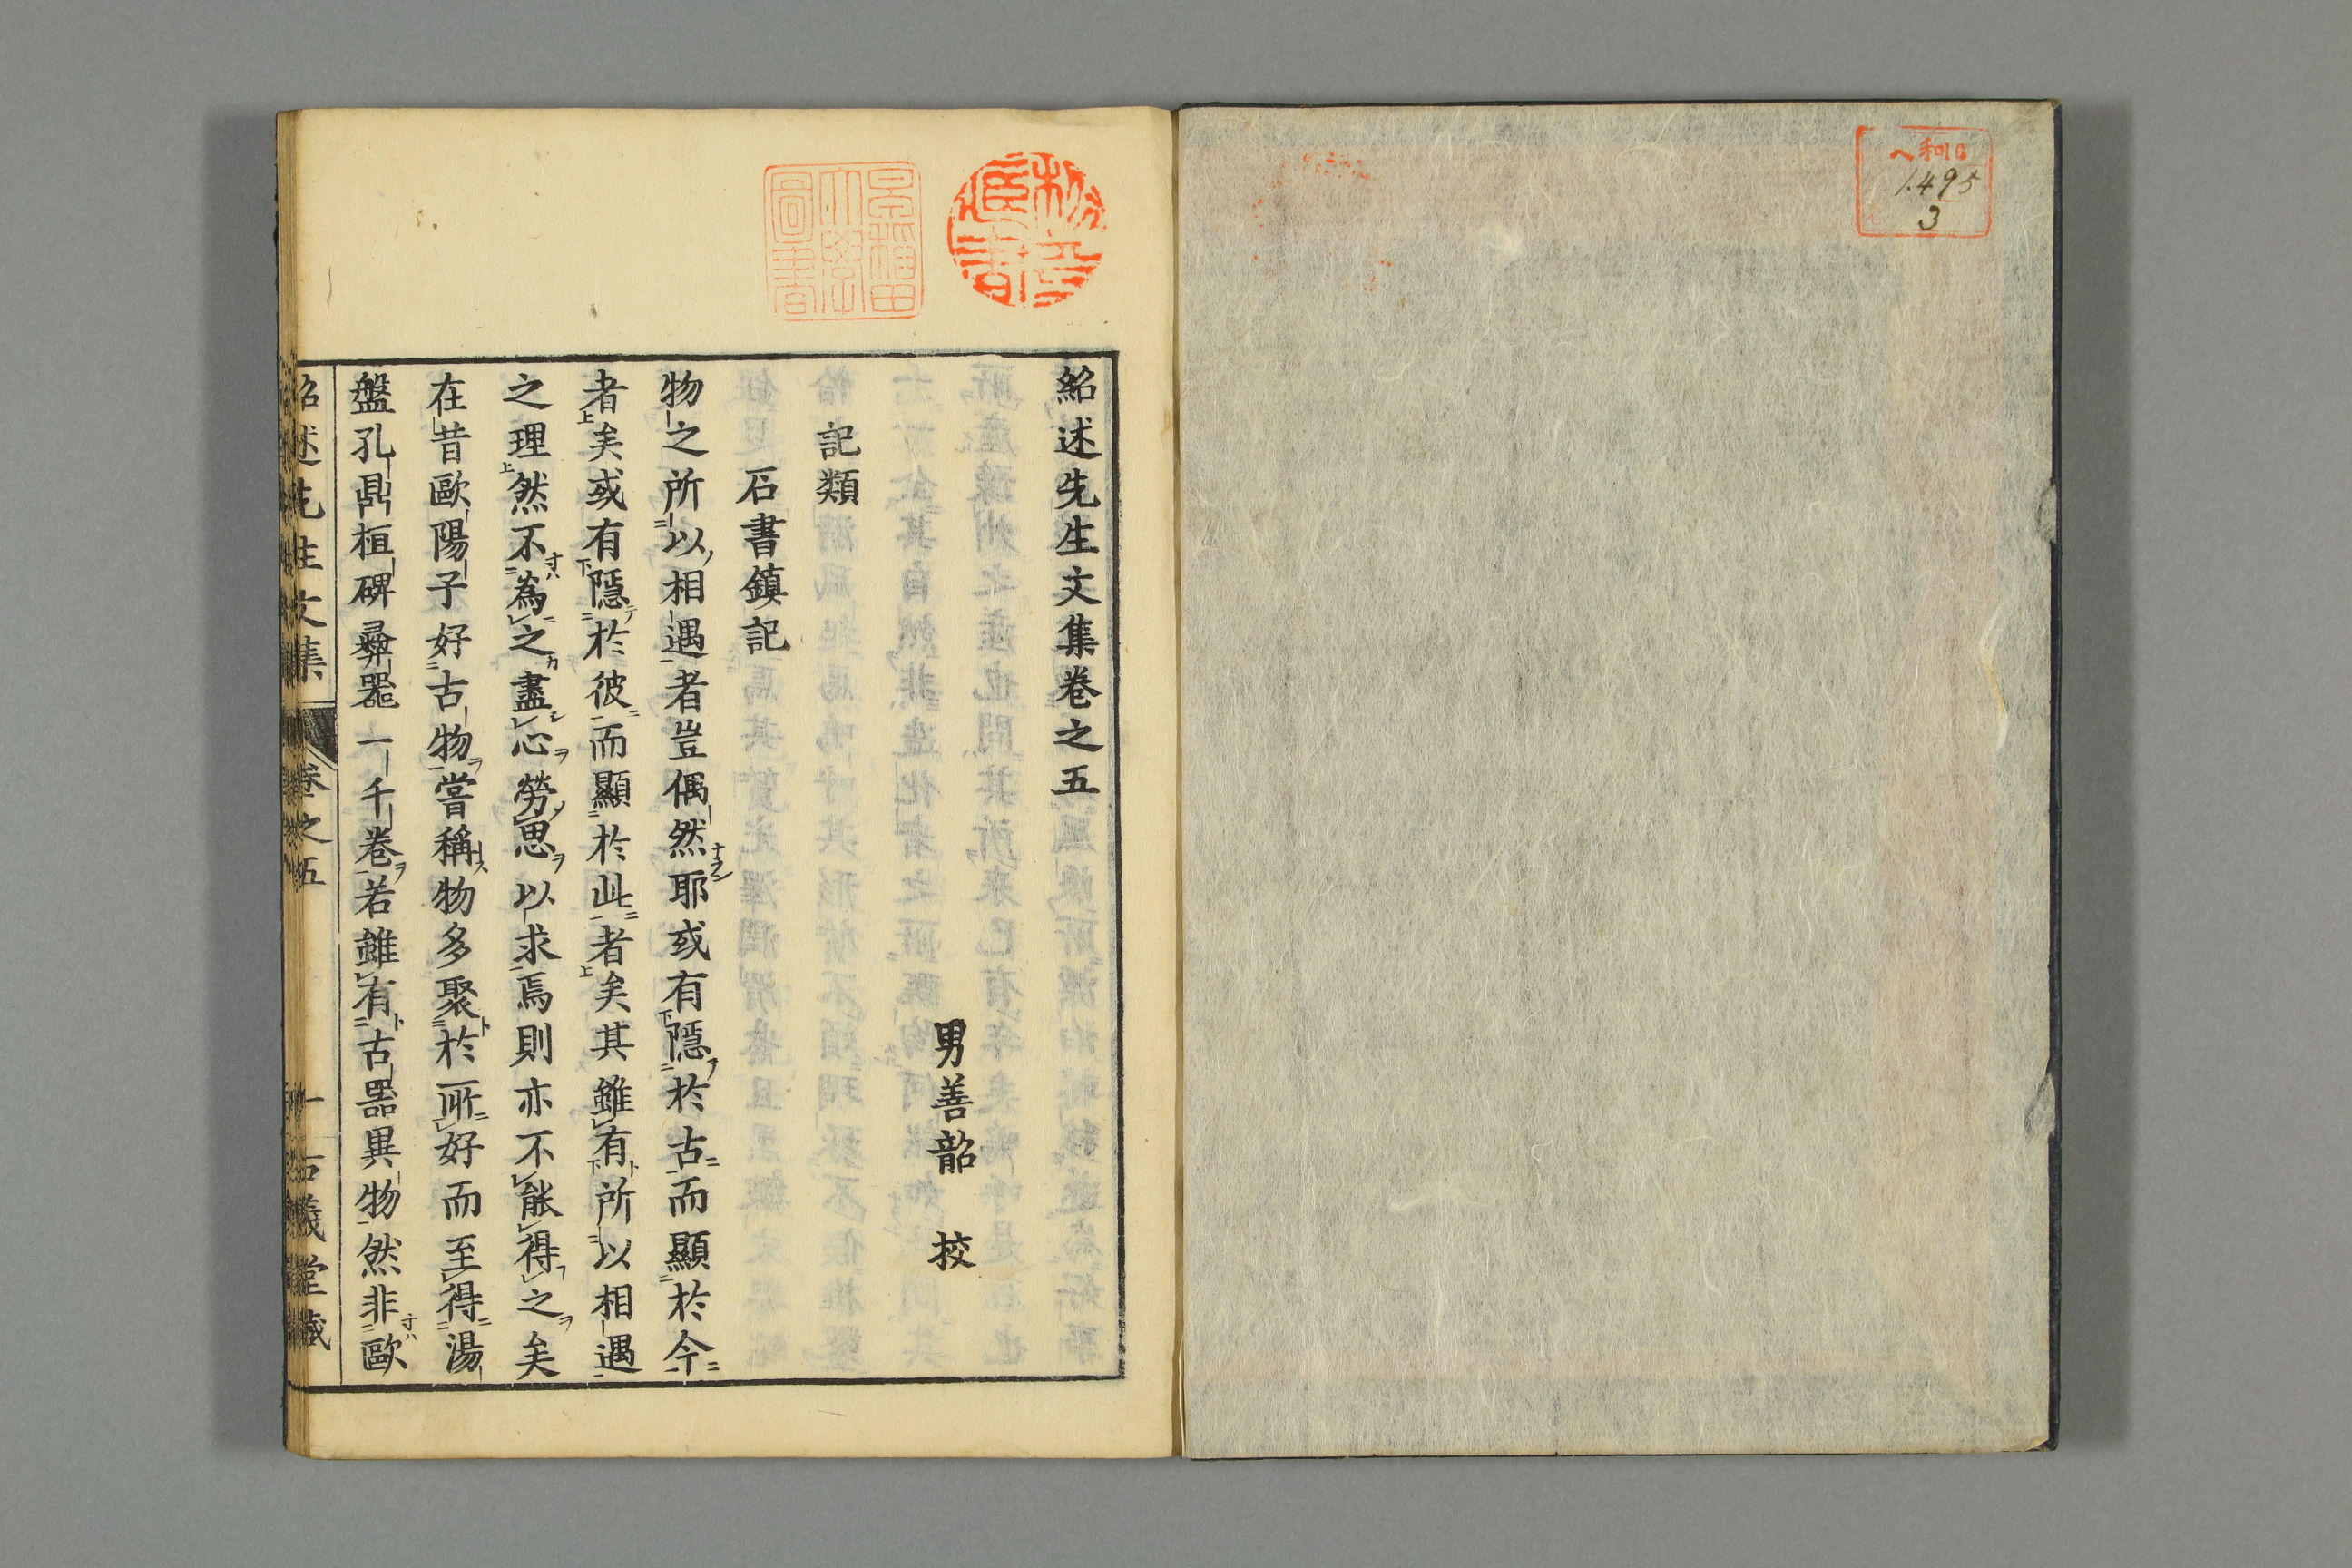 ヘ和16
1495
3
紹述先生文集卷之五
男善韶 挍
記類
石書鎮記
物之所以相遇者豈偶然耶或有隱於古而顯於今
者矣或有隱於彼而顯於此者矣其雖有所以相遇
之理然不為之盡心勞思以求焉則亦不能得之矣
在昔歐陽子好古物嘗稱物多聚於所好而至得湯
盤孔鼎桓碑彛器一千卷若雖有古器異物然非歐
紹述先生文集 卷之五 一 古義堂藏
早稲田
大學
圖書